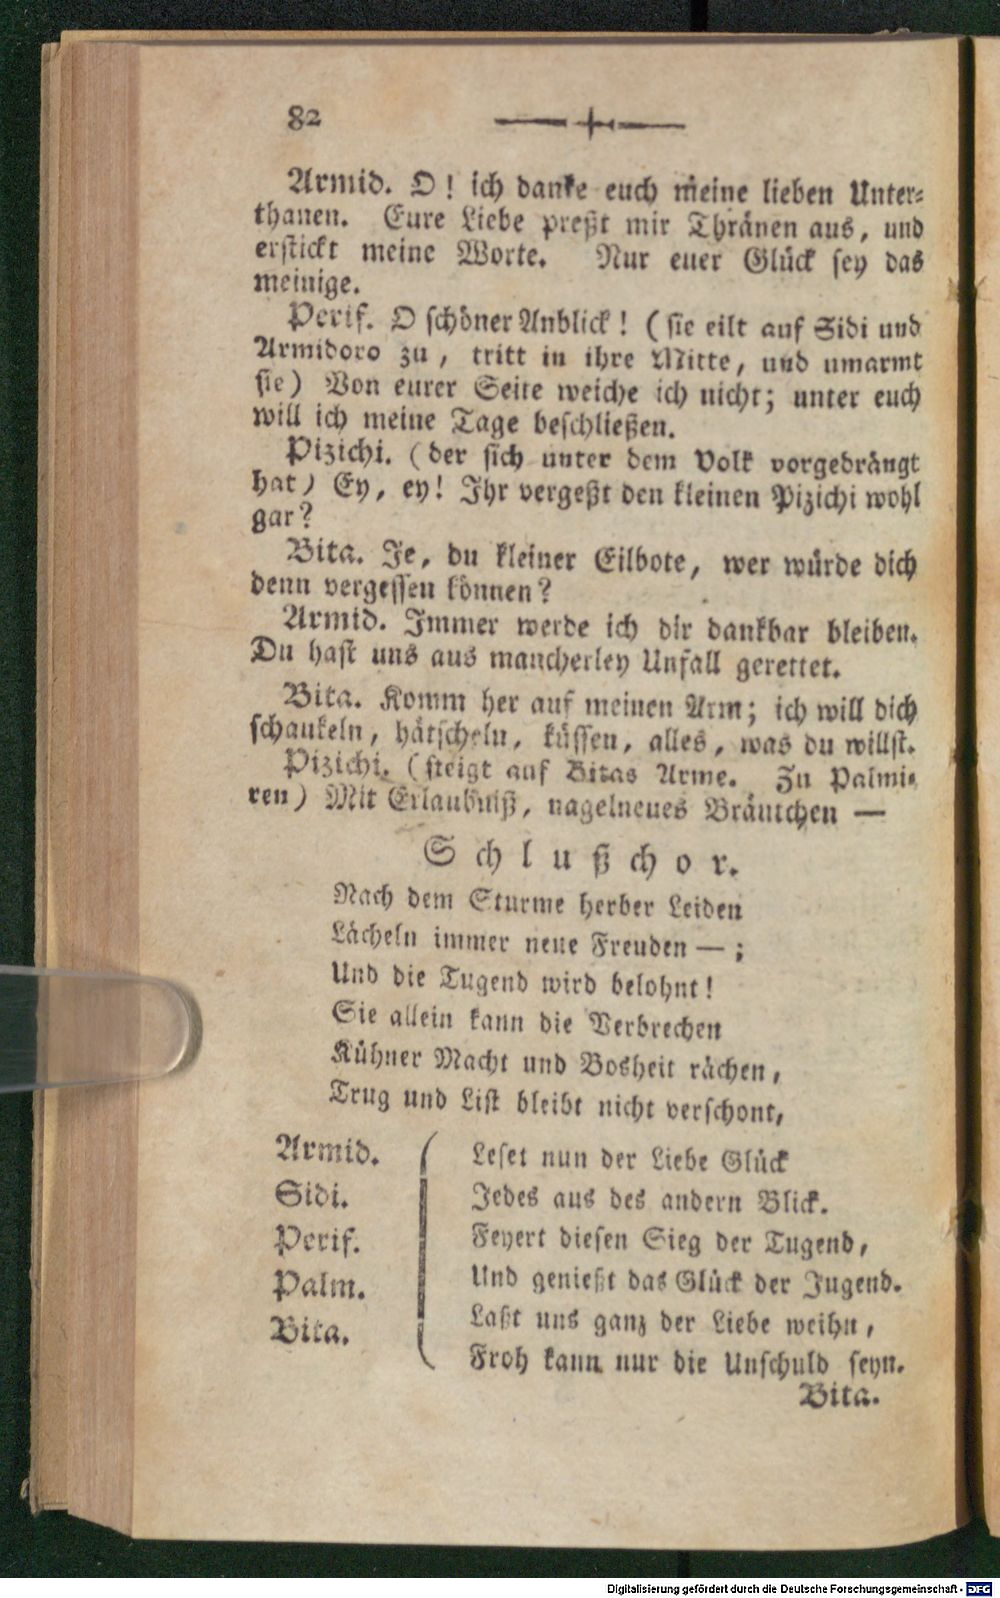 82
Armid. O! ich danke euch meine lieben Unter-
thanen. Eure Liebe preßt mir Thränen aus, und
erstickt meine Worte. Nur euer Glück sey das
meinige.
Perif. O schöner Anblick! (sie eilt auf Sidi und
Armidoro zu, tritt in ihre Mitte, und umarmt
sie) Von eurer Seite weiche ich nicht; unter euch
will ich meine Tage beschließen.
Pizichi. (der sich unter dem Volk vorgedrängt
hat) Ey, ey! Ihr vergeßt den kleinen Pizichi wohl
gar?
Bita. Je, du kleiner Eilbote, wer würde dich
denn vergessen können?
Armid. Immer werde ich dir dankbar bleiben.
Du hast uns aus mancherley Unfall gerettet.
Bita. Komm her auf meinen Arm; ich will dich
schaukeln, hätscheln, küssen, alles, was du willst.
Pizichi. (steigt auf Bitas Arme. Zu Palmi-
ren) Mit Erlaubniß, nagelneues Bräutchen —
Schlußchor.
Nach dem Sturme herber Leiden
Lächeln immer neue Freuden — ;
Und die Tugend wird belohnt!
Sie allein kann die Verbrechen
Kühner Macht und Bosheit rächen,
Trug und List bleibt nicht verschont,
Armid.
Sidi.
Perif.
Palm.
Bita.
Leset nun der Liebe Glück
Jedes aus des andern Blick.
Feyert diesen Sieg der Tugend,
Und genießt das Glück der Jugend.
Laßt uns ganz der Liebe weihn,
Froh kann nur die Unschuld seyn.
Bita.
Digitalisierung gefördert durch die Deutsche Forschungsgemeinschaft - DFG